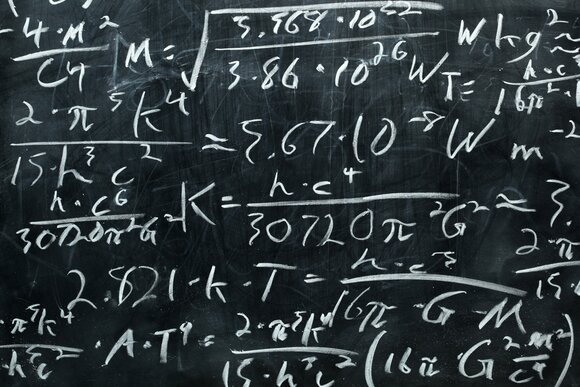 4·M² / C4 M = √(3.968·10²² / 3.86·10²⁶ W) W kg²
T = h·c / 16π²
2·π⁵ k⁴ / 15·h³ c² ≈ 5,67·10⁻⁸ W m⁻²
h·c⁶ / 30720π²G² K = h·c⁴ / 30720π²G² ≈ 3.
2·π / 15·
2.821·k·T = h·c³ / 16π·G·M
·π⁵k⁴ / ·h³c² ·A·T⁴ = 2·π⁵k⁴ / 15·h³c² (16π·G² m² / c⁴